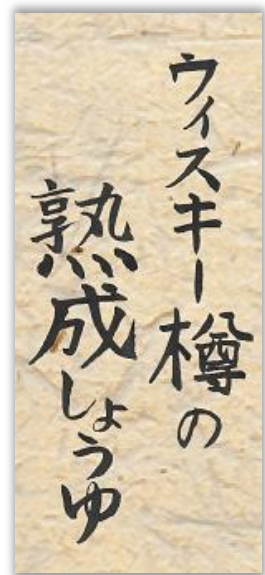 ウィスキー樽の
熟成しょうゆ